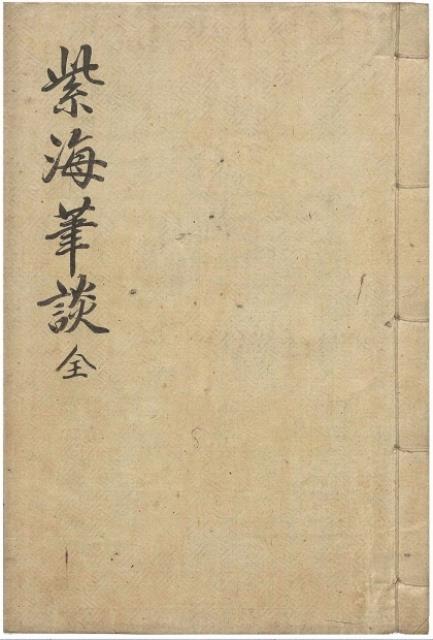 紫海筆談 全